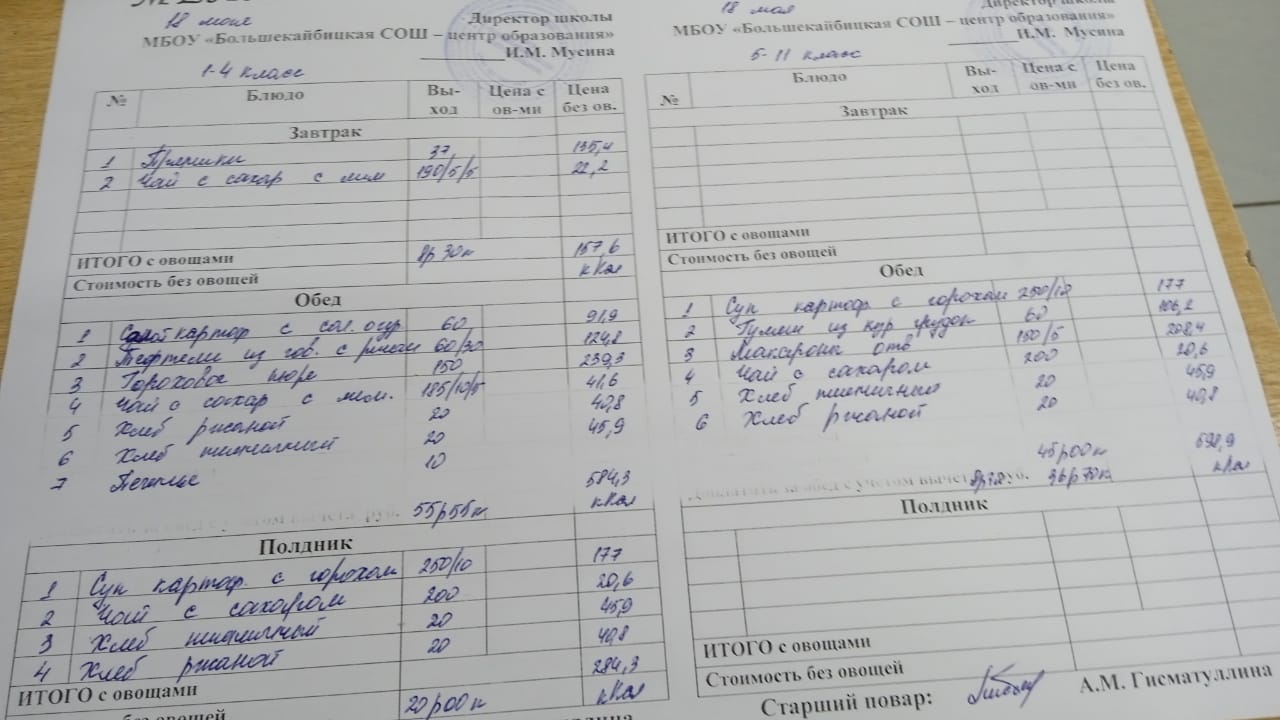 18 мая
Директор школы
МБОУ «Большекайбицкая СОШ – центр образования»
И.М. Мусина
1-4 класс
№ Блюдо Вы-ход Цена с ов-ми Цена без ов.
Завтрак
1 Пряники 37 135,4
2 Чай с сахар с лим 190/5/5 22,2
ИТОГО с овощами 8р 30к 157,6
Стоимость без овощей кКал
Обед
1 Салат картоф с сол. огур 60 91,9
2 Тефтели из гов. с рисом 60/30 124,8
3 Гороховое пюре 150 239,3
4 Чай с сахар с лим. 185/10/5 41,6
5 Хлеб ржаной 20 40,8
6 Хлеб пшеничный 20 45,9
7 Печенье 10
584,3
55р55к кКал
Полдник
1 Суп картоф. с горохом 250/10 177
2 Чай с сахаром 200 20,6
3 Хлеб пшеничный 20 45,9
4 Хлеб ржаной 20 40,8
ИТОГО с овощами 284,3
без овощей 20р00к кКал
18 мая
Директор школы
МБОУ «Большекайбицкая СОШ – центр образования»
И.М. Мусина
5-11 класс
№ Блюдо Вы-ход Цена с ов-ми Цена без ов.
Завтрак
ИТОГО с овощами
Стоимость без овощей
Обед
1 Суп картоф. с горохом 250/10 177
2 Гуляш из кур грудок 60 106,2
3 Макароны отв 150/5 208,4
4 Чай с сахаром 200 20,6
5 Хлеб пшеничный 20 45,9
6 Хлеб ржаной 20 40,8
45р00к 598,9
за обед с учетом вычета руб. 36р70к кКал
Полдник
ИТОГО с овощами
Стоимость без овощей
Старший повар: А.М. Гисматуллина